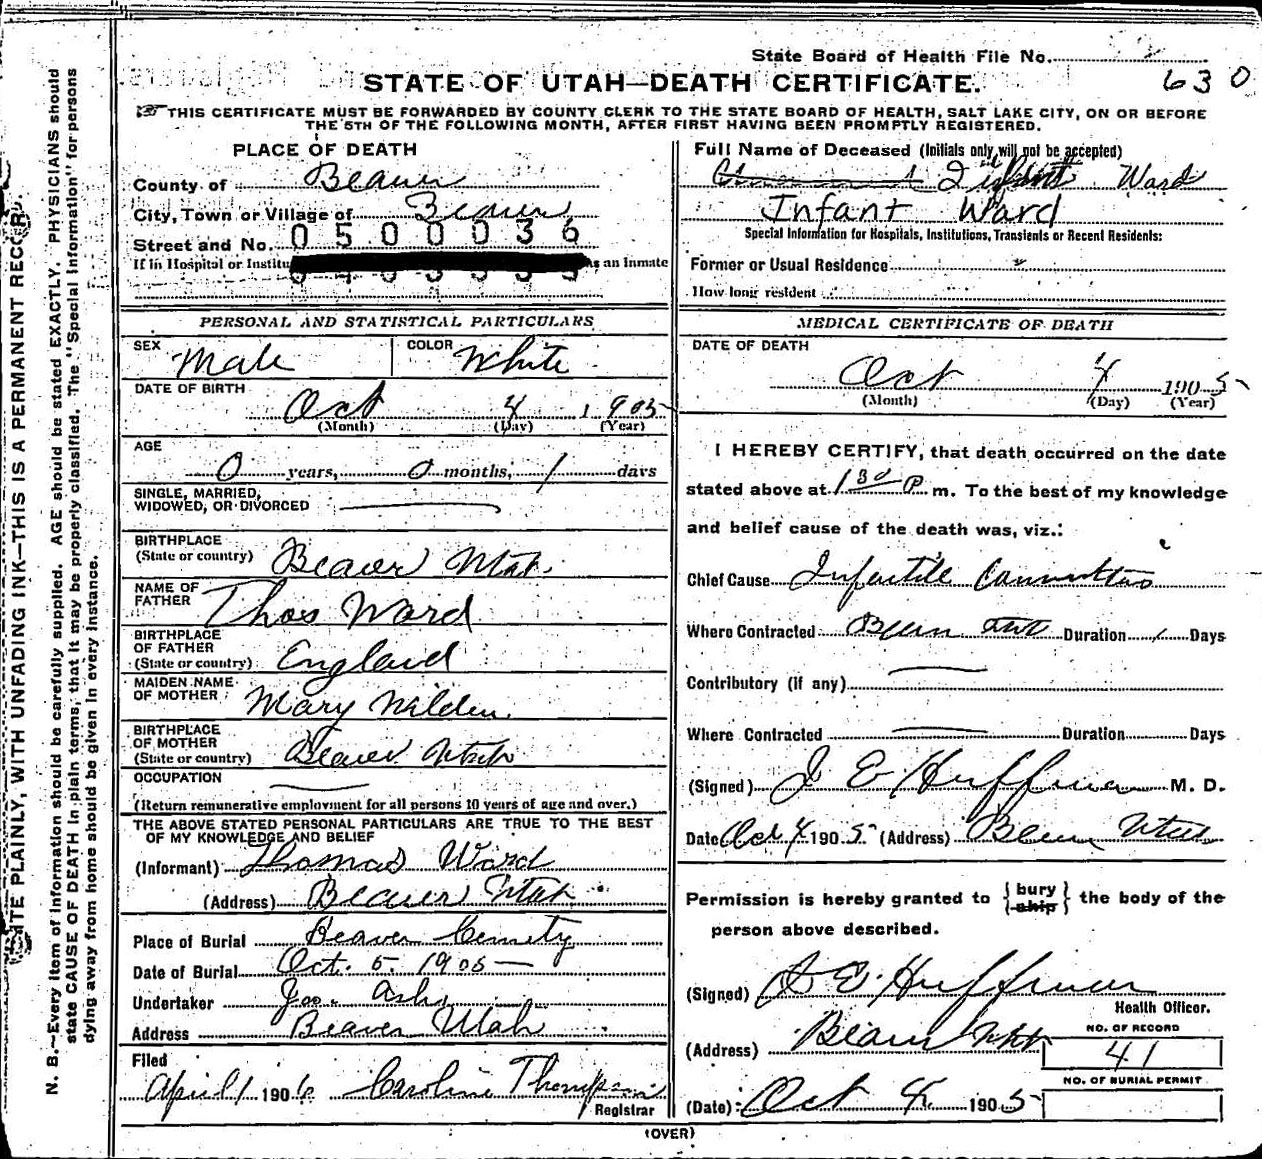 State Board of Health File No.
STATE OF UTAH—DEATH CERTIFICATE.
630
THIS CERTIFICATE MUST BE FORWARDED BY COUNTY CLERK TO THE STATE BOARD OF HEALTH, SALT LAKE CITY, ON OR BEFORE
THE 5TH OF THE FOLLOWING MONTH, AFTER FIRST HAVING BEEN PROMPTLY REGISTERED.
PLACE OF DEATH
County of Beaver
City, Town or Village of Beaver
Street and No. 0500036
If in Hospital or Institu as an Inmate
PERSONAL AND STATISTICAL PARTICULARS
SEX Male COLOR White
DATE OF BIRTH
Oct 4 1905
(Month) (Day) (Year)
AGE
0 years, 0 months, 1 days
SINGLE, MARRIED,
WIDOWED, OR DIVORCED
BIRTHPLACE
(State or country) Beaver Utah.
NAME OF
FATHER Thos Ward
BIRTHPLACE
OF FATHER
(State or country) England
MAIDEN NAME
OF MOTHER Mary Wilden.
BIRTHPLACE
OF MOTHER
(State or country) Beaver Utah
OCCUPATION
(Return remunerative employment for all persons 10 years of age and over.)
THE ABOVE STATED PERSONAL PARTICULARS ARE TRUE TO THE BEST
OF MY KNOWLEDGE AND BELIEF
(Informant) Thomas Ward
(Address) Beaver Utah
Place of Burial Beaver Cemety
Date of Burial Oct. 5. 1905
Undertaker Ash
Address Beaver Utah
Filed
April 1 1906 Caroline Thompson
Registrar
Full Name of Deceased (Initials only will not be accepted)
Ward
Infant Ward
Special Information for Hospitals, Institutions, Transients or Recent Residents:
Former or Usual Residence
How long resident
MEDICAL CERTIFICATE OF DEATH
DATE OF DEATH
Oct 4 1905
(Month) (Day) (Year)
I HEREBY CERTIFY, that death occurred on the date
stated above at 1 30 P m. To the best of my knowledge
and belief cause of the death was, viz.:
Chief Cause Infantile
Where Contracted Beaver Utah Duration 1 Days
Contributory (if any)
Where Contracted Duration Days
(Signed) J E Huffman M. D.
Date Oct 4 1905 (Address) Beaver Utah
Permission is hereby granted to { bury ship } the body of the
person above described.
(Signed) E Huffman
Health Officer.
(Address) Beaver Utah
NO. OF RECORD
41
NO. OF BURIAL PERMIT
(Date): Oct 4 1905
(OVER)
WRITE PLAINLY, WITH UNFADING INK—THIS IS A PERMANENT RECORD.
N. B.—Every item of information should be carefully supplied. AGE should be stated EXACTLY. PHYSICIANS should
state CAUSE OF DEATH in plain terms, that it may be properly classified. The "Special Information" for persons
dying away from home should be given in every instance.